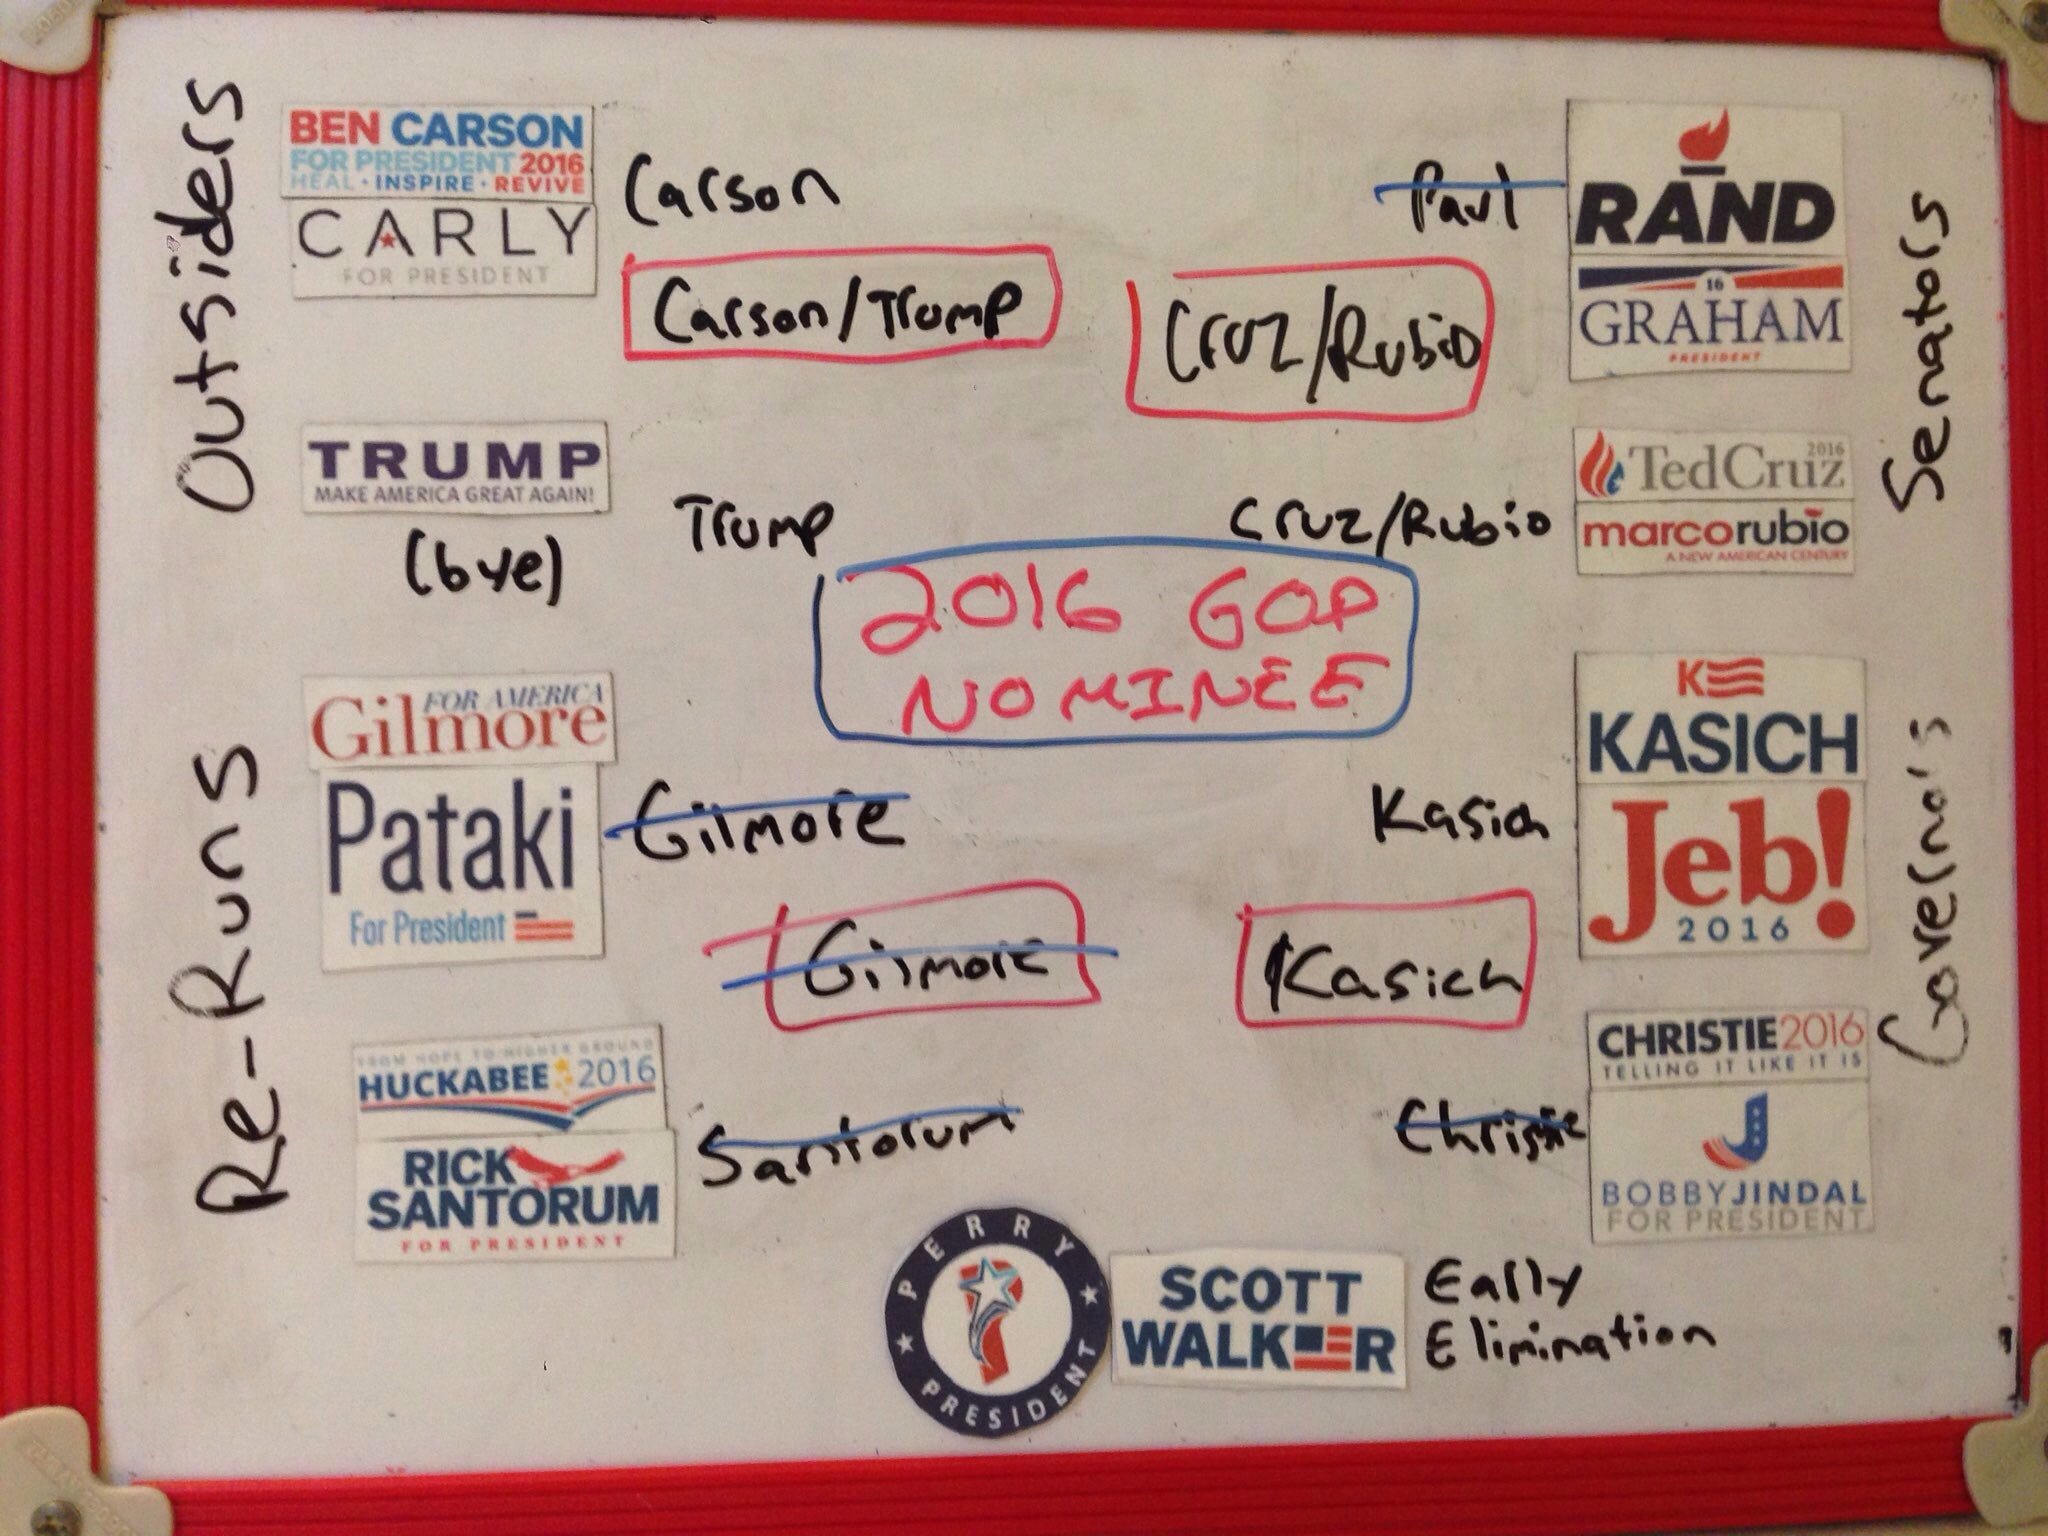 Outsiders
BEN CARSON
FOR PRESIDENT 2016
HEAL • INSPIRE • REVIVE
CARLY
FOR PRESIDENT
Carson
Carson/Trump
TRUMP
MAKE AMERICA GREAT AGAIN!
(bye)
Trump
Paul
RAND
16
GRAHAM
PRESIDENT
Senators
Cruz/Rubio
TedCruz 2016
marcorubio
A NEW AMERICAN CENTURY
Cruz/Rubio
2016 GOP
NOMINEE
Re-Runs
FOR AMERICA
Gilmore
Pataki
For President
Gilmore
Gilmore
FROM HOPE TO HIGHER GROUND
HUCKABEE 2016
RICK
SANTORUM
FOR PRESIDENT
Santorum
K
KASICH
Jeb!
2016
Kasich
Kasich
Governors
CHRISTIE 2016
TELLING IT LIKE IT IS
Christie
BOBBY JINDAL
FOR PRESIDENT
PERRY
PRESIDENT
SCOTT
WALKER
Early
Elimination